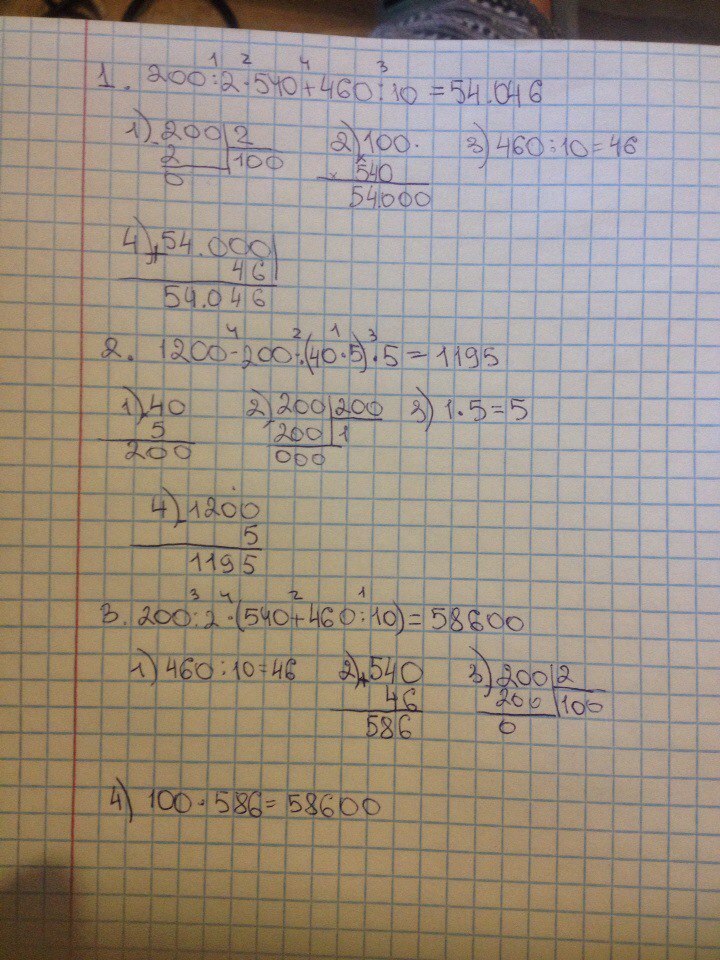 1 2 4 3
1. 200:2·540+460:10=54.046
1) 200 2 2) 100· 3) 460:10=46
2 100 × 540
0 54.000
4) +54.000
46
54.046
4 2 1 3
2. 1200-200:(40·5)·5=1195
1) ·40 2) 200 200 3) 1·5=5
5 200 1
200 000
4) -1200
5
1195
3 4 2 1
3. 200:2·(540+460:10)=58600
1) 460:10=46 2) +540 3) 200 2
46 200 100
586 0
4) 100·586=58600